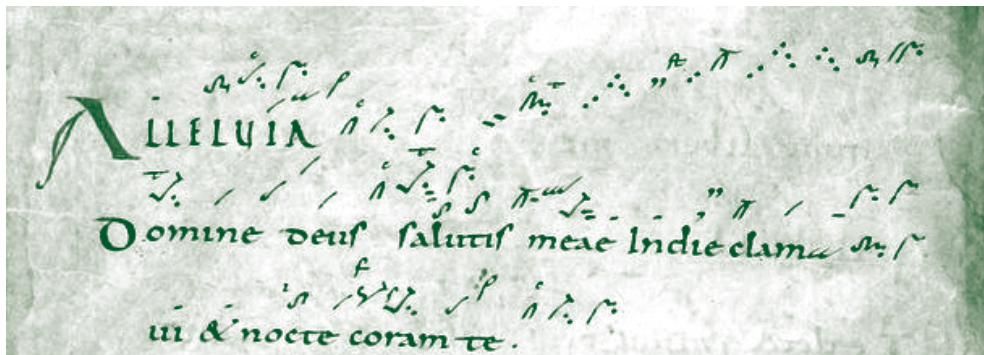 ALLELUIA
Domine deus salutis meae In die clama
ui & nocte coram te .